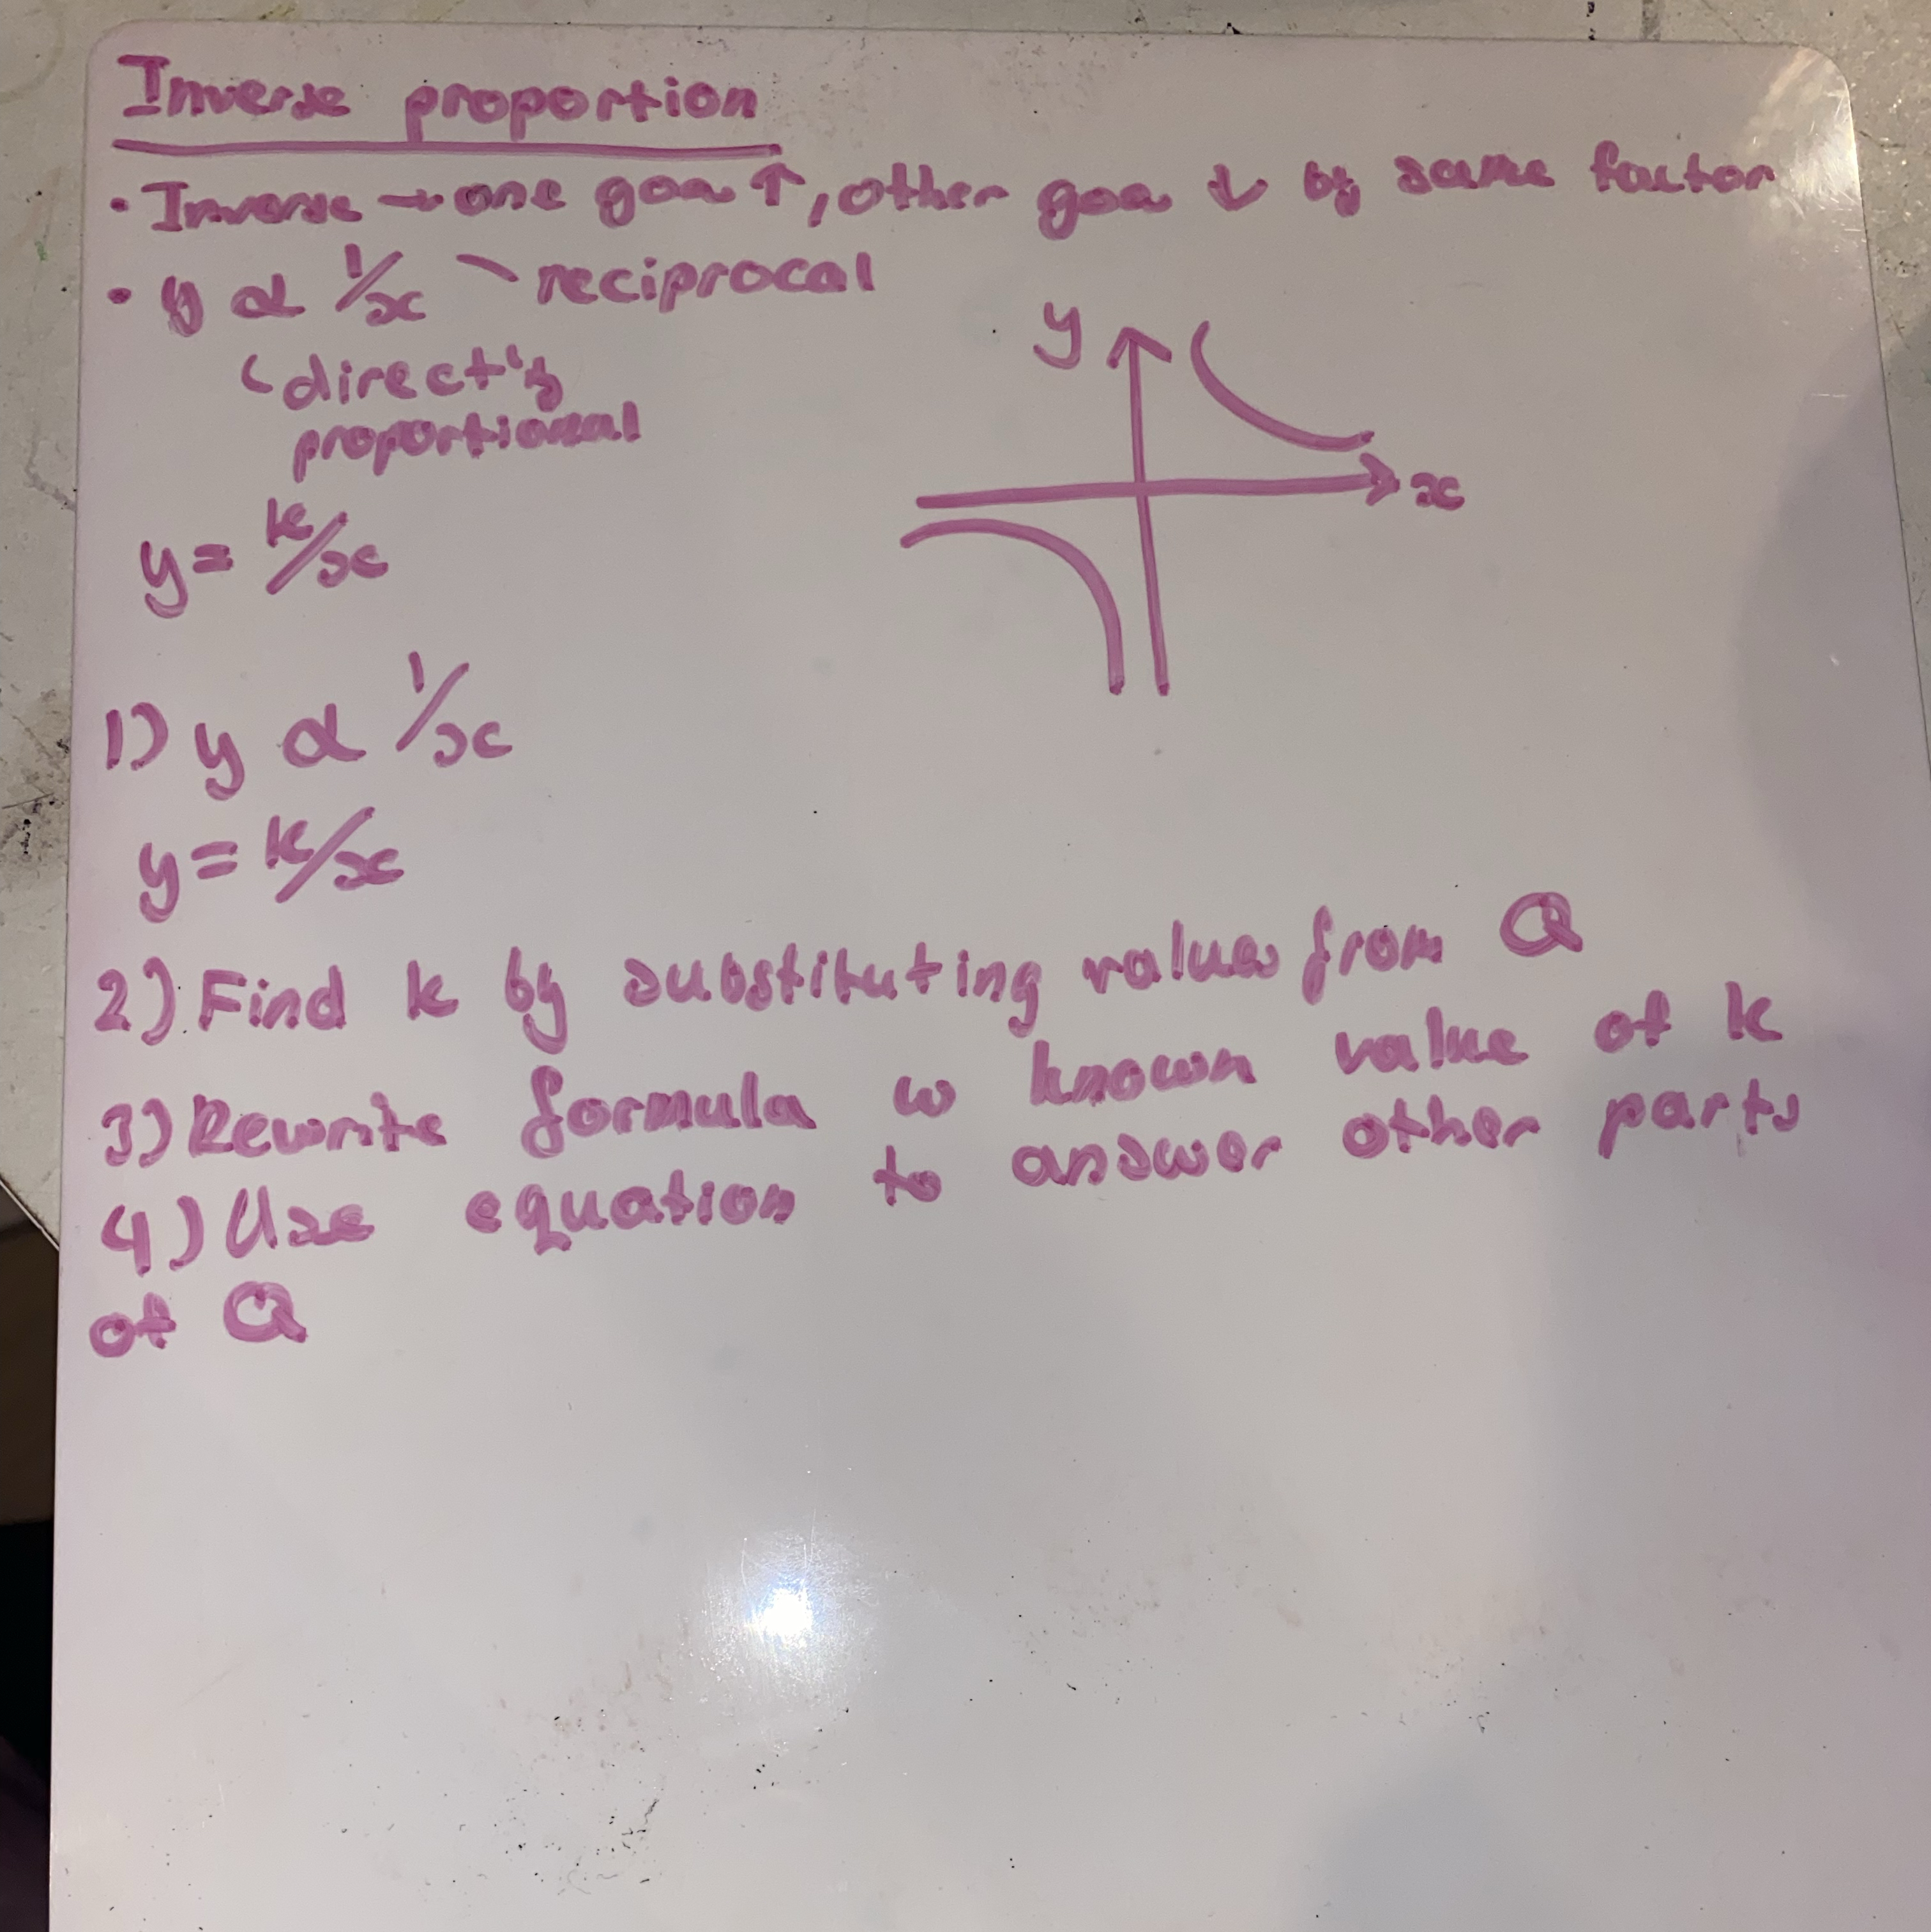 Inverse proportion
• Inverse → one goes ↑, other goes ↓ by same factor
• y α 1/x \ reciprocal
( directly
proportional
y
x
y = k/x
1) y α 1/x
y = k/x
2) Find k by substituting values from Q
3) Rewrite formula w known value of k
4) Use equation to answer other parts
of Q